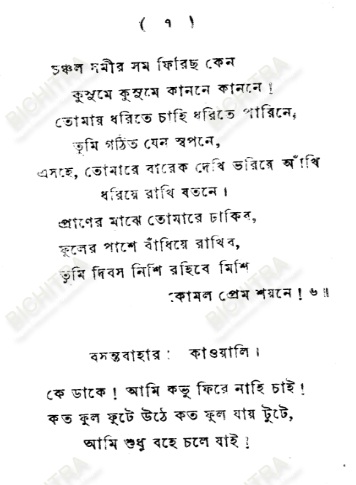 ( ৭ )
চঞ্চল সমীর সম ফিরিছ কেন
কুসুমে কুসুমে কাননে কাননে !
তোমায় ধরিতে চাহি ধরিতে পারিনে,
তুমি গঠিত যেন স্বপনে,
এসহে, তোমারে বারেক দেখি ভরিয়ে আঁখি
ধরিয়ে রাখি যতনে ।
প্রাণের মাঝে তোমারে ঢাকিব,
ফুলের পাশে বাঁধিয়ে রাখিব,
তুমি দিবস নিশি রহিবে মিশি
কোমল প্রেম শয়নে ! ৬ ॥
বসন্তবাহার : কাওয়ালি ।
কে ডাকে ! আমি কভু ফিরে নাহি চাই !
কত ফুল ফুটে উঠে কত ফুল যায় টুটে,
আমি শুধু বহে চলে যাই !
BICHITRA